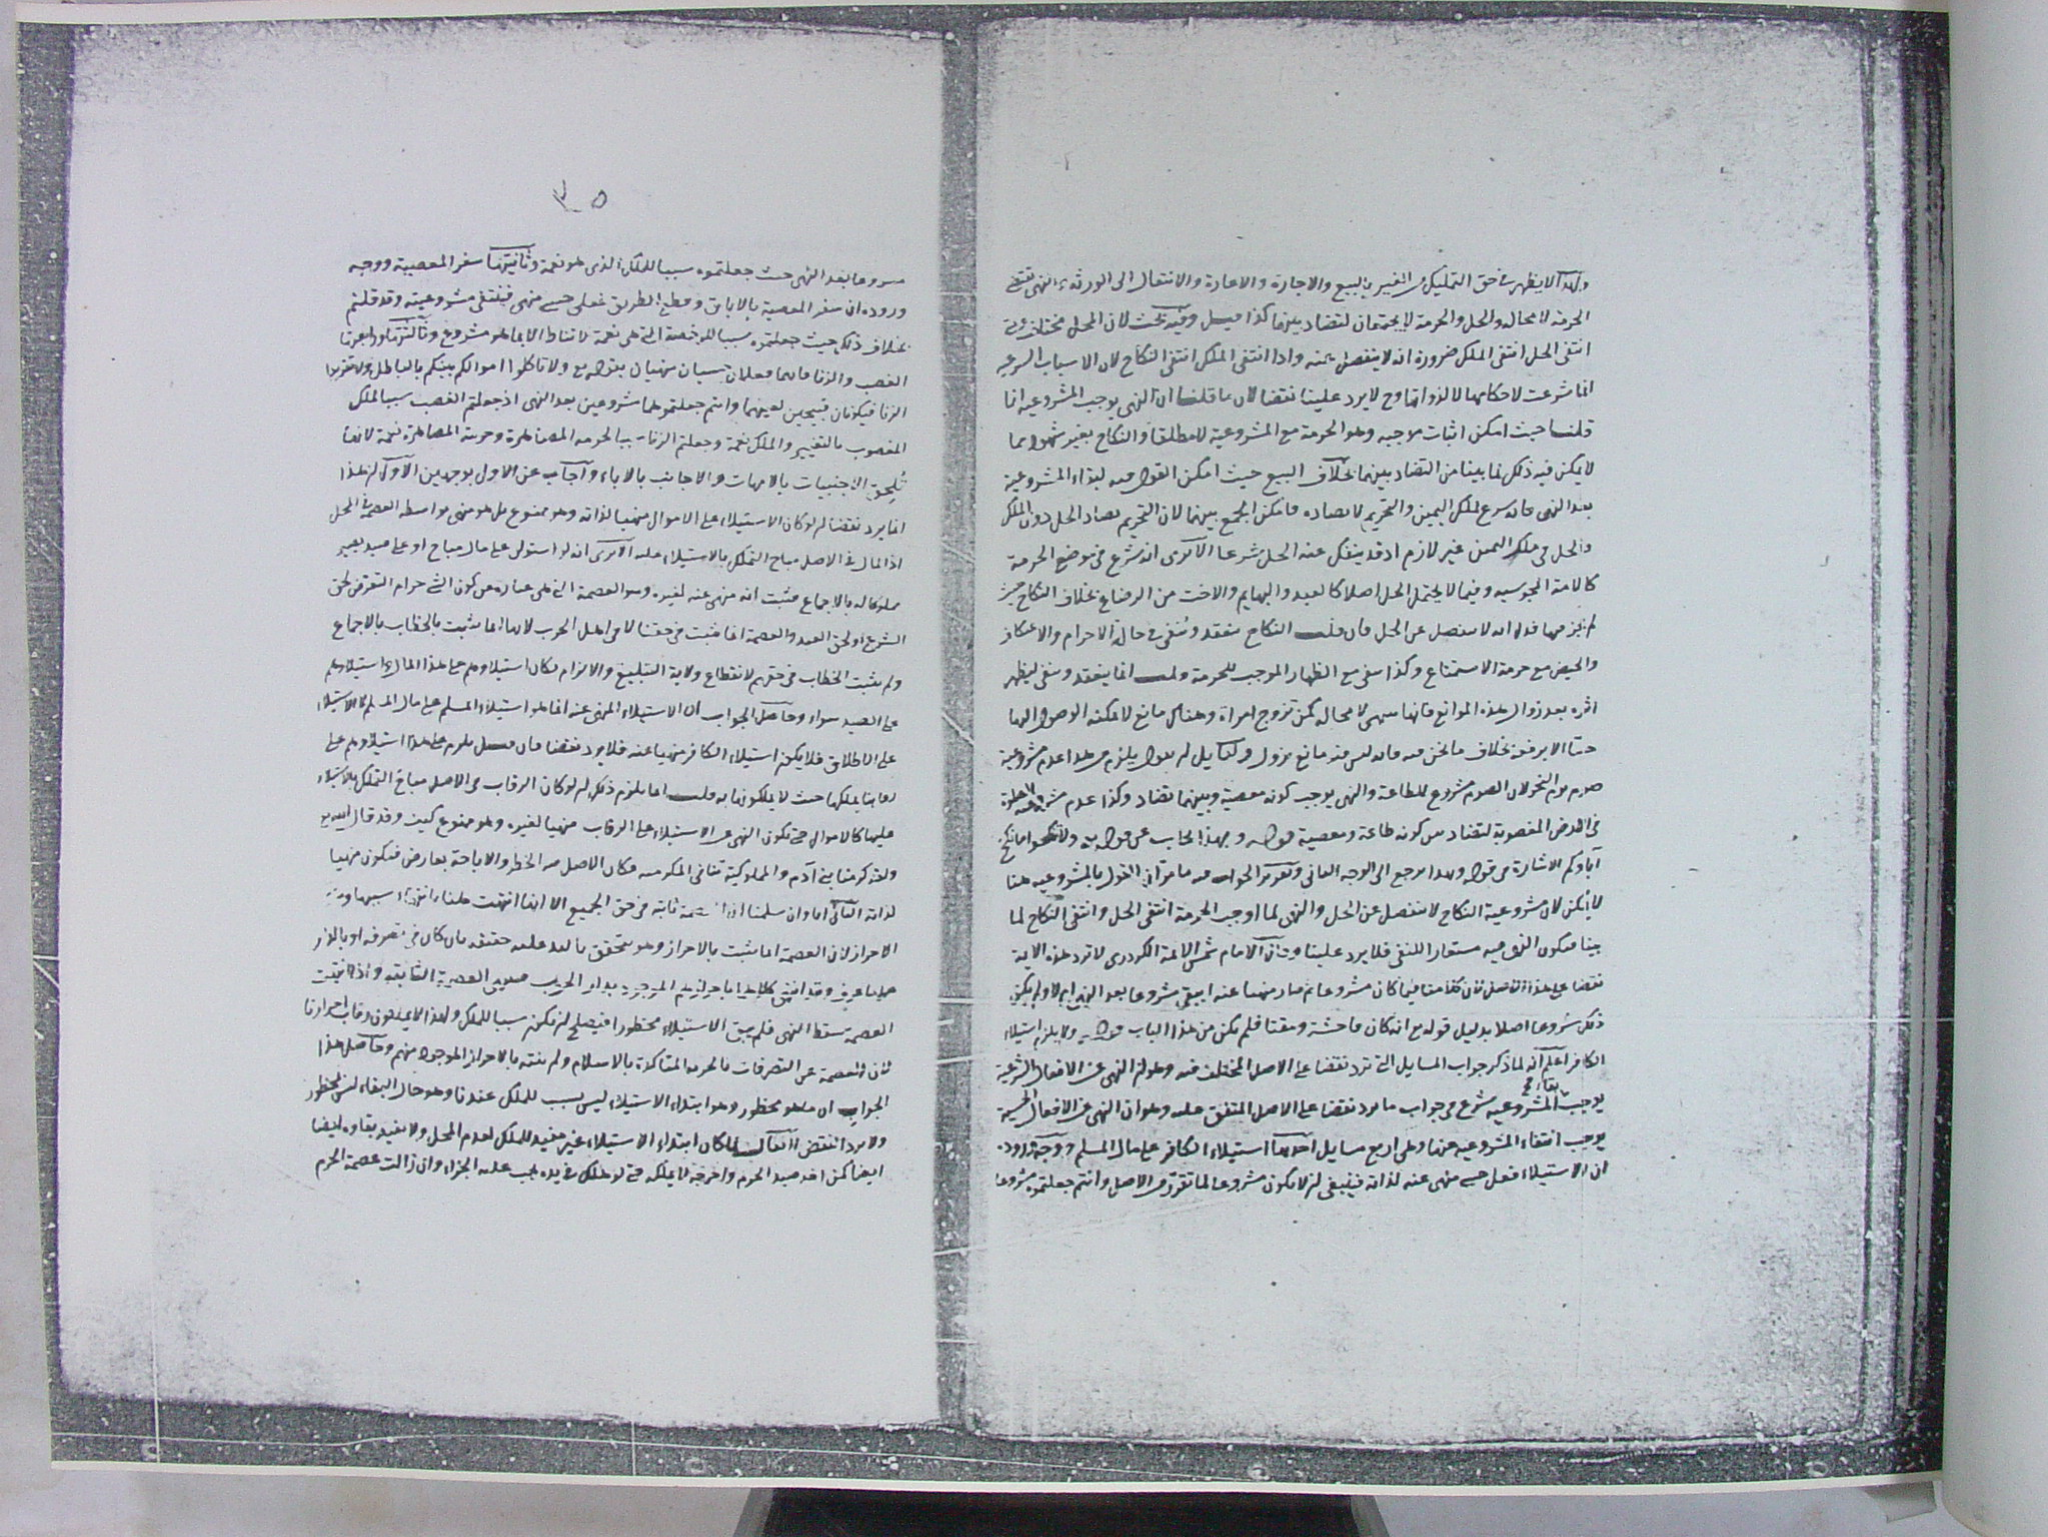 ولهذا لا يظهر في حق التمليك من الغير بالبيع والاجارة والاعارة والانتقال الى الورثة والنهي تقتضي
الحرمة لا محالة والحل والحرمة لا يجتمعان لتضاد بينهما كذا قيل وفيه بحث لان المحل مختلف ومتى
انتفى الحل انتفى الملك ضرورة انه لا ينفصل عنه واذا انتفى الملك انتفى النكاح لان الاسباب الشرعية
انما شرعت لاحكامها لا لذواتها وح لا يرد علينا نقضا لان ما قلنا ان النهي يوجب المشروعية انا
قلنا حيث امكن اثبات موجبه وهو الحرمة مع المشروعية لا مطلقا والنكاح بغير شهود مما
لا يمكن فيه ذلك لما بينا من التضاد بينهما بخلاف البيع حيث امكن القول فيه ببقاء المشروعية
بعد النهي فانه شرع لملك اليمين والتحريم لا يضاده فامكن الجمع بينهما لان التحريم يضاد الحل دون الملك
والحل في ملك اليمين غير لازم اذ قد ينفك عنه الحل شرعا الا ترى انه شرع في موضع الحرمة
كالامة المجوسية وفيما لا يحتمل الحل اصلا كالعبد والبهايم والاخت من الرضاع بخلاف النكاح حيث
لم يجز فيها فدل انه لا ينفصل عن الحل فان قلت النكاح ينعقد ويبقى في حالة الاحرام والاعتكاف
والحيض مع حرمة الاستمتاع وكذا يبقى مع الظهار الموجب للحرمة قلت انما ينعقد ويبقى ليظهر
اثره بعد زوال هذه الموانع فانها تنتهي لا محالة كمن تزوج امراة وهناك مانع لا يمكنه الوصول اليها
حتى الا برفعه بخلاف ما نحن فيه فانه ليس فيه مانع يزول ولقايل ان يقول يلزم من هذا عدم مشروعية
صوم يوم النحر لان الصوم مشروع للطاعة والنهي يوجب كونه معصية وبينهما تضاد وكذا عدم مشروعية الصلوة
في الارض المغصوبة لتضاد بين كونه طاعة ومعصية قوله وبهذا يجاب عن قوله تع ولا تنكحوا ما نكح
آباؤكم الاشارة في قوله وبهذا يرجع الى الوجه الثاني وتقرير الجواب فيه ما مر ان القول بالمشروعية هنا
لا يمكن لان مشروعية النكاح لا تنفصل عن الحل والنهي لما اوجب الحرمة انتفى الحل وانتفى النكاح لما
بينا فيكون النهي فيه مستعارا للنفي فلا يرد علينا وقال الامام شمس الائمة الكردري لا ترد هذه الاية
نقضا على هذا الاصل لان كلامنا فيما كان مشروعا ثم صار منهيا عنه ايبقى مشروعا بعد النهي ام لا ولم يكن
ذلك مشروعا اصلا بدليل قوله تع انه كان فاحشة ومقتا فلم يكن من هذا الباب قوله ولا يلزم استيلاء
الكافر اعلم انه لما ذكر جواب المسايل التي ترد نقضا على الاصل المختلف فيه وهو ان النهي عن الافعال الشرعية
يوجب بقاء المشروعية شرع في جواب ما يرد نقضا على الاصل المتفق عليه وهو ان النهي عن الافعال الحسية
يوجب انتفاء المشروعية عنها وهي اربع مسايل احديها استيلاء الكافر على مال المسلم ووجه وروده
ان الاستيلاء فعل حسي منهي عنه لذاته فينبغي ان لا يكون مشروعا لما تقرر من الاصل وانتم جعلتموه مشروعا
٣٥
مشروعا بعد النهي حيث جعلتموه سببا للملك الذي هو نعمة وثانيتها سفر المعصية ووجه
وروده ان سفر المعصية بالاباق وقطع الطريق فعل حسي منهي فينتفي مشروعيته وقد قلتم
بخلاف ذلك حيث جعلتموه سببا للرخصة التي هي نعمة لا تناط الا بما هو مشروع وثالثتها ورابعتها
الغصب والزنا فانهما فعلان حسيان منهيان بقوله تع ولا تاكلوا اموالكم بينكم بالباطل ولا تقربوا
الزنا فيكونان قبيحين لعينهما وانتم جعلتموهما مشروعين بعد النهي اذ جعلتم الغصب سببا لملك
المغصوب بالتغيير والملك نعمة وجعلتم الزنا سببا لحرمة المصاهرة وحرمة المصاهرة نعمة لانها
تلحق الاجنبيات بالامهات والاجانب بالاباء واجاب عن الاول بوجهين الاول ان هذا
انما يرد نقضا ان لو كان الاستيلاء على الاموال منهيا لذاته وهو ممنوع بل هو منهي بواسطة العصمة في المحل
اذ المال في الاصل مباح التملك بالاستيلاء عليه الا ترى انه لو استولى على مال مباح او على صيد يصير
مملوكا له بالاجماع فثبت انه منهي عنه لغيره وهو العصمة التي هي عبارة عن كون الشئ حرام التعرض لحق
الشرع او لحق العبد والعصمة انما ثبتت في حقنا لا في اهل الحرب لانها انما تثبت بالخطاب بالاجماع
ولم يثبت الخطاب في حقهم لانقطاع ولاية التبليغ والالزام فكان استيلاؤهم على هذا المال واستيلاؤهم
على الصيد سواء وحاصل الجواب ان الاستيلاء المنهي عنه انما هو استيلاء المسلم على مال المسلم لا الاستيلاء
على الاطلاق فلا يكون استيلاء الكافر منهيا عنه فلا يرد نقضا فان قيل يلزم على هذا استيلاؤهم على
رقابنا يملكها حيث لا يملكونها به قلت انما يلزم ذلك ان لو كان الرقاب في الاصل مباح التملك بالاستيلاء
عليها كالاموال حتى يكون النهي عن الاستيلاء على الرقاب منهيا لغيره وهو ممنوع كيف وقد قال الله تع
ولقد كرمنا بني آدم والمملوكية تنافي المكرمية فكان الاصل فيه الحظر والاباحة بعارض فيكون منهيا
لذاته الثاني انا وان سلمنا ان العصمة ثابتة في حق الجميع الا انها انتهت بانتهاء سببها وهو
الاحراز لان العصمة انما تثبت بالاحراز وهو يتحقق باليد عليه حقيقة بان كان في تصرفه او بالدار
وقد انتهى كلاهما باحرازهم الموجود بدار الحرب فينتهي العصمة الثابتة واذا انتهت
العصمة سقط النهي فلم يبق الاستيلاء محظورا فيصلح ان يكون سببا للملك ولهذا لا يملكون رقاب احرارنا
لان العصمة عن التصرفات بالحرية المتاكدة بالاسلام ولم ينته بالاحراز الموجود منهم وحاصل هذا
الجواب ان ما هو محظور وهو ابتداء الاستيلاء ليس بسبب للملك عندنا وهو حال البقاء ليس بمحظور
ولا يرد النقض لا يقال لما كان ابتداء الاستيلاء غير مفيد للملك لعدم المحل ولا يفيد بقاوه ايضا
ايضا كمن اخذ صيد الحرم واخرجه لا يملكه حتى لو هلك في يده يجب عليه الجزاء وان زالت عصمة الحرم